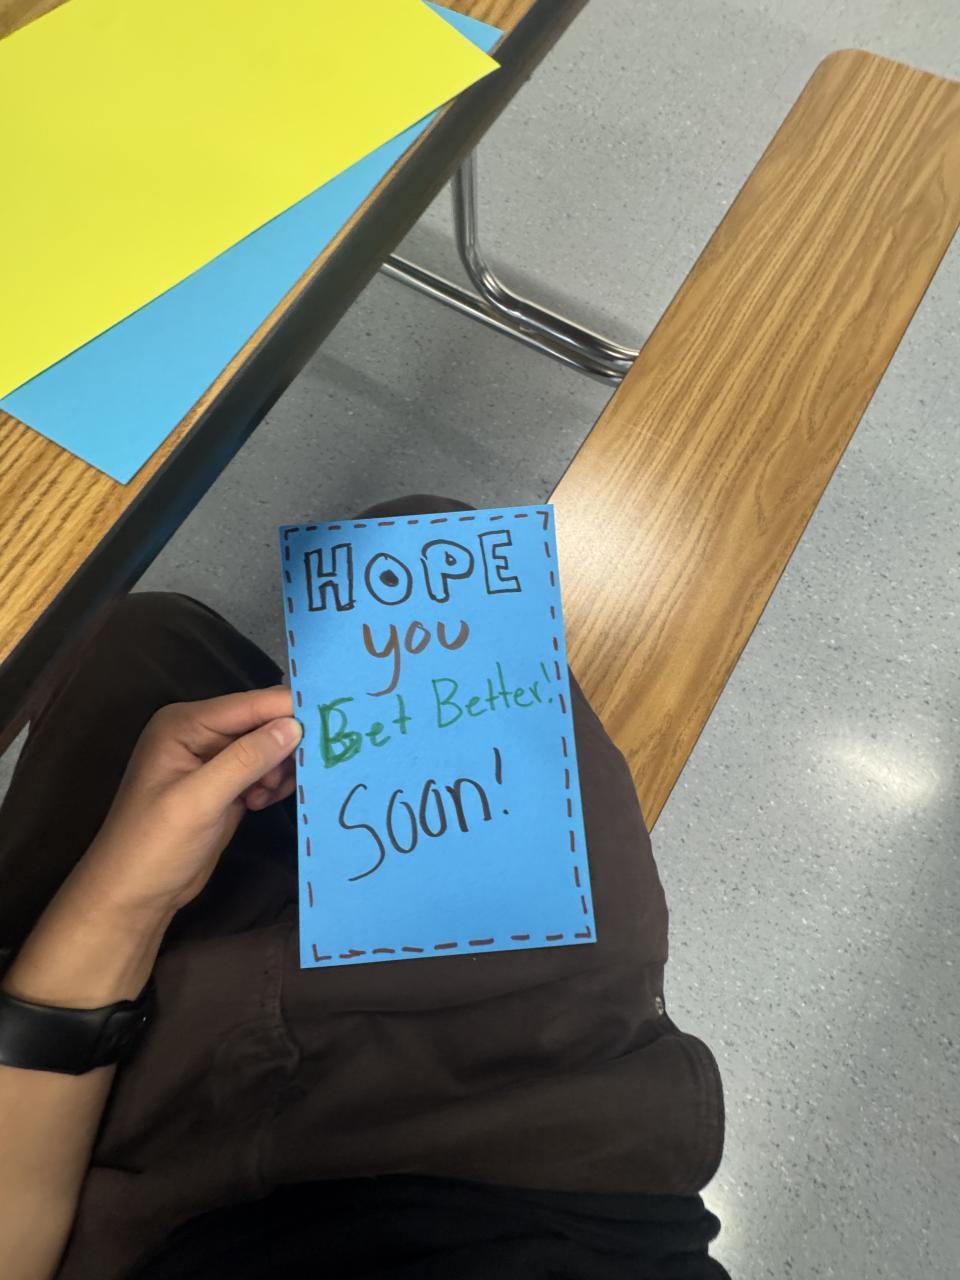 HOPE
you
Get Better!
Soon!